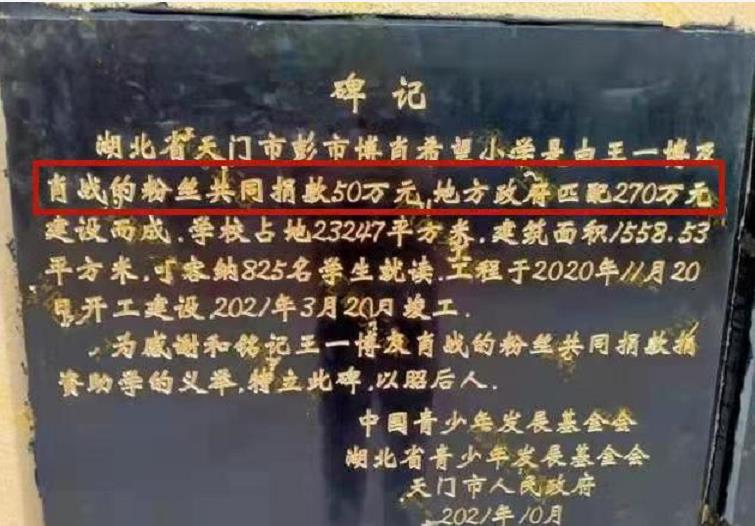 碑记
湖北省天门市彭市博肖希望小学是由王一博及
肖战的粉丝共同捐款50万元,地方政府匹配270万元
建设而成.学校占地23247平方米.建筑面积1558.53
平方米,可容纳825名学生就读.工程于2020年11月20
日开工建设,2021年3月20月竣工.
为感谢和铭记王一博及肖战的粉丝共同捐款捐
资助学的义举,特立此碑,以昭后人.
中国青少年发展基金会
湖北省青少年发展基金会
天门市人民政府
2021年10月